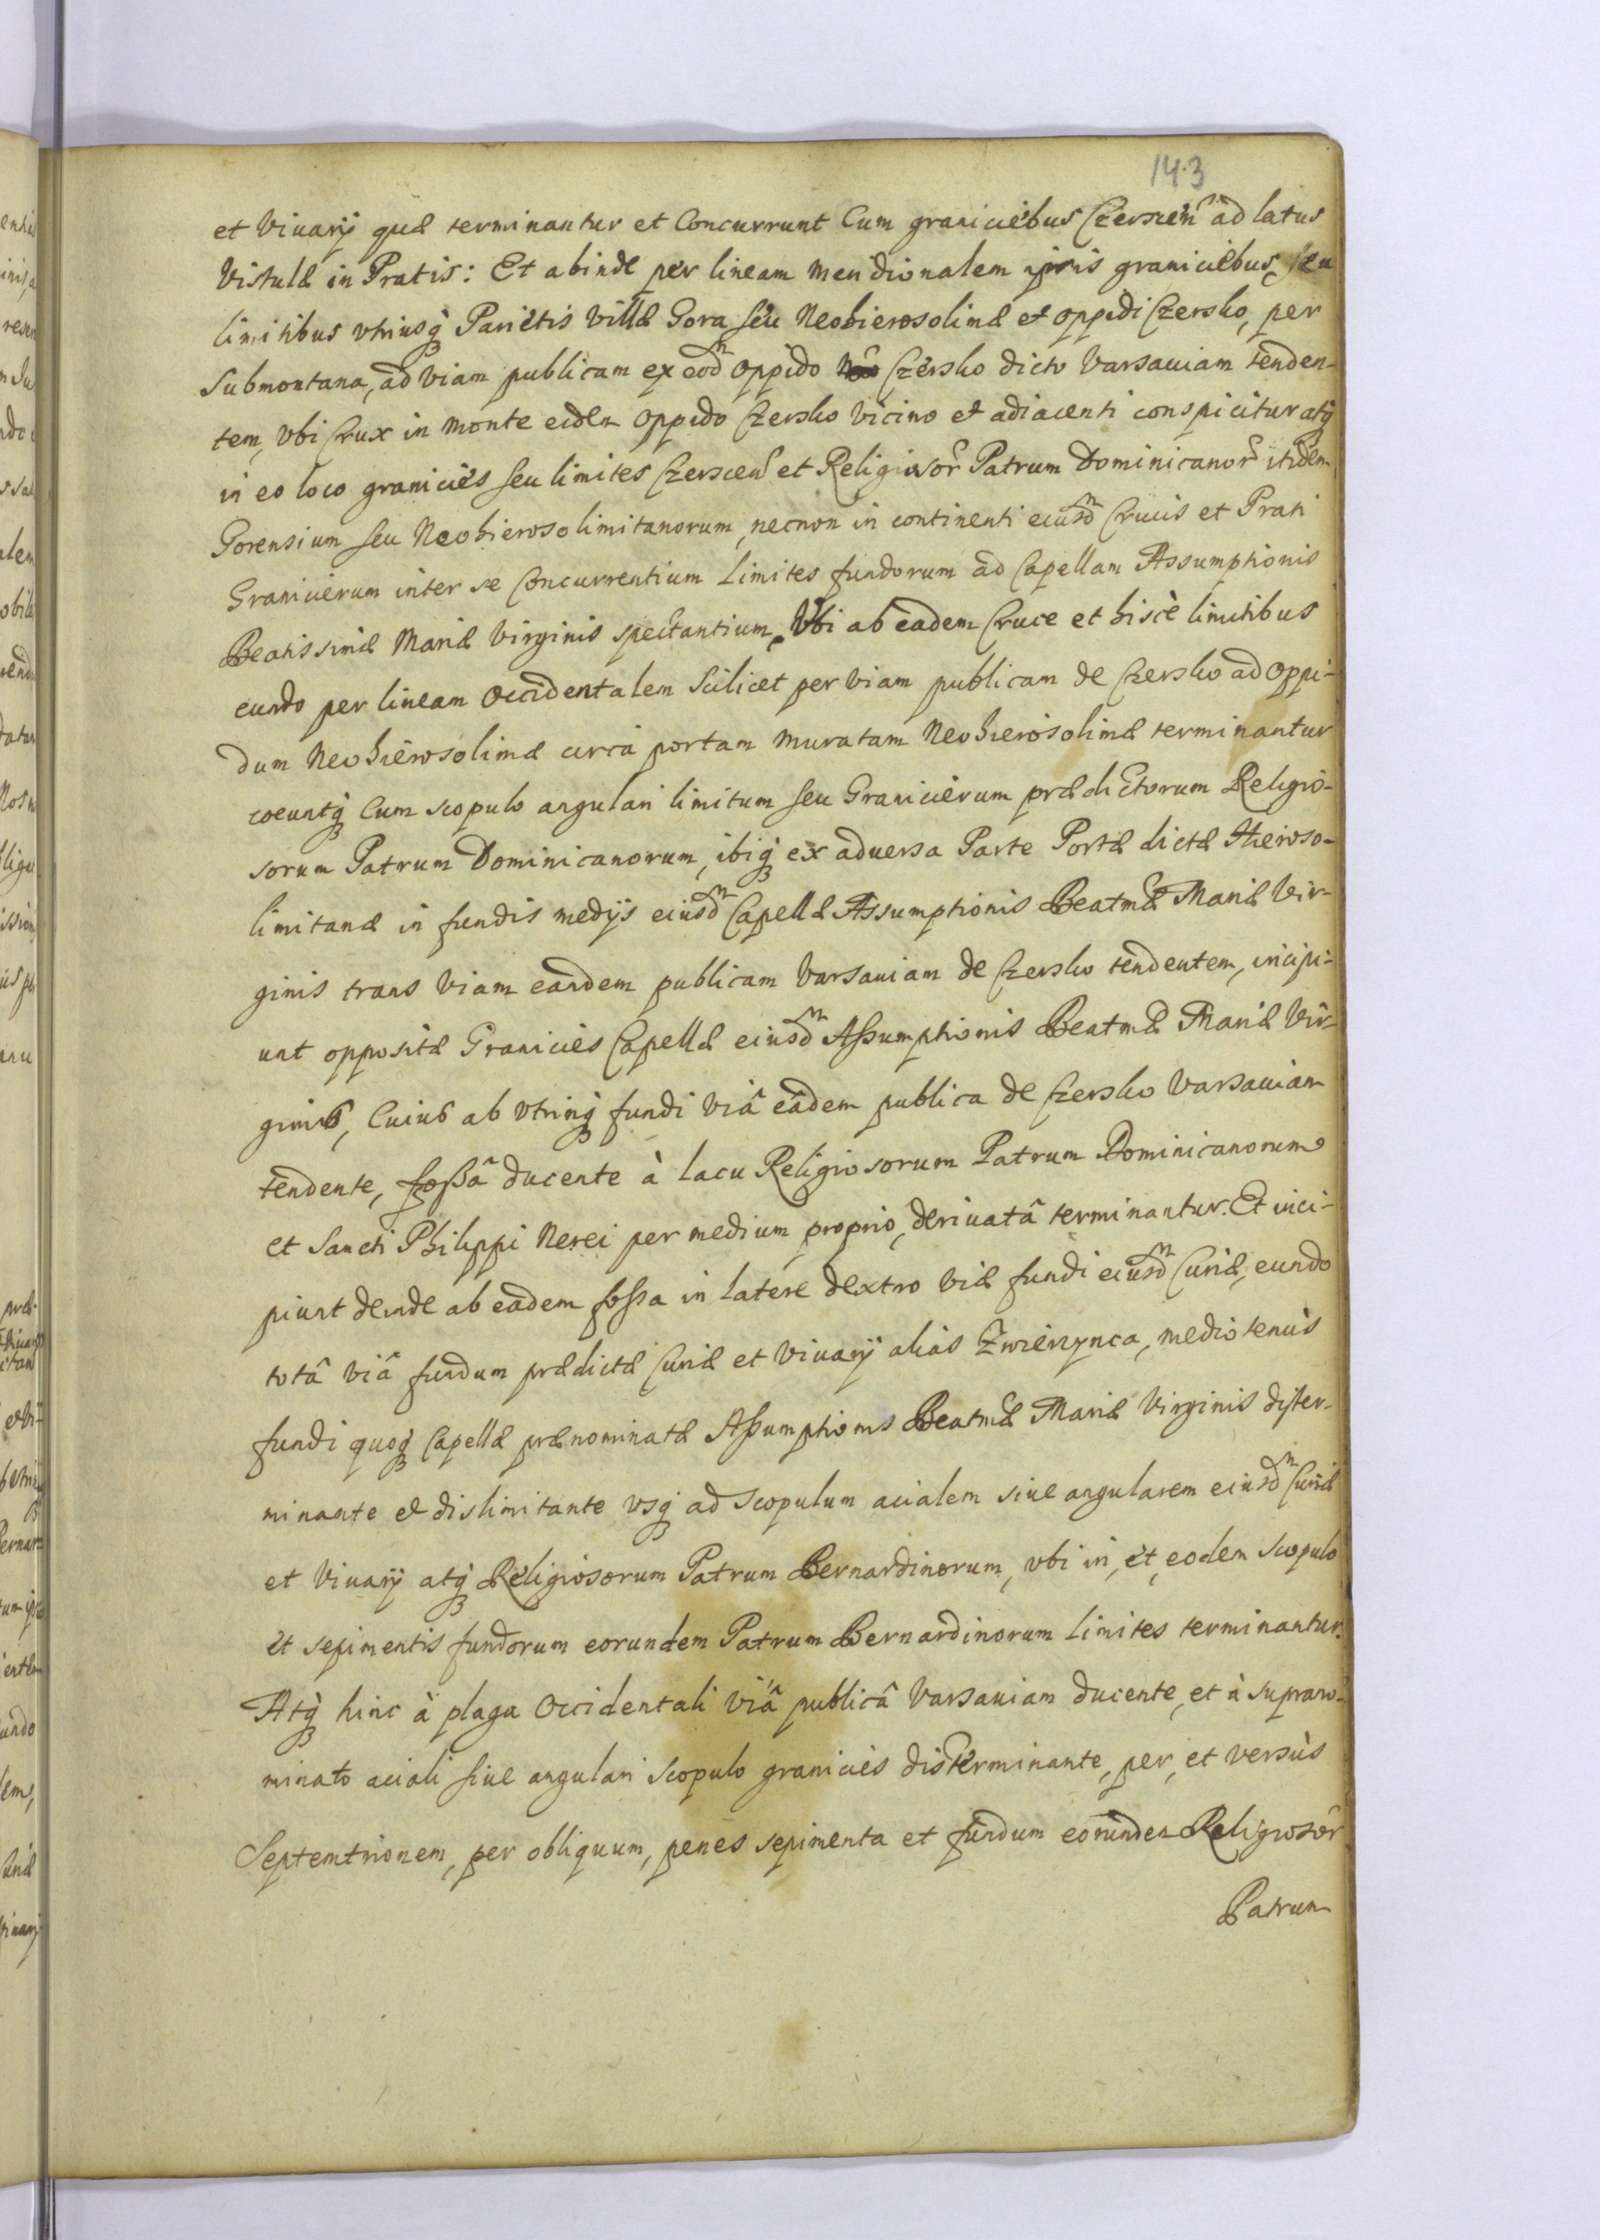 143
et Viuarij quæ terminantur et Concurrunt Cum graniciebus Czerscen̄ ad latus
Vistulæ in Pratis: Et abinde per lineam meridionalem ipsis graniciebus, seu
limitibus vtriusq̨ Parietis villæ Gora seu Neohierosolimæ et oppidi Czersko, per
Submontana, ad viam publicam ex eod̄m oppido Czersko dicto Varsauiam tenden-
tem, vbi Crux in monte eidem oppido Czersko vicino et adiacenti conspicitur atq̨
in eo loco granicies seu limites Czerscen̄ et Religiosor̄ Patrum Dominicanor̄ itidem
Gorensium seu Neohierosolimitanorum, necnon in continenti eiusd̄m Crucis et Prati
Granicierum inter se Concurrentium Limites fundorum ad Capellam Assumptionis
Beatissimæ Mariæ Virginis spectantium, Vbi ab eadem Cruce et hisce limitibus
eundo per lineam Occidentalem Scilicet per viam publicam de Czersko ad oppi-
dum Neohierosolimæ circa portam muratam Neohierosolimæ terminantur
coeuntq̨ Cum scopulo angulari limitum seu Granicierum prædictorum Religio-
sorum Patrum Dominicanorum, ibiq̨ ex aduersa Parte Portæ dictæ Hieroso-
limitanæ in fundis medijs eiusd̄m Capellæ Assumptionis Beatmæ Mariæ Vir-
ginis trans viam eandem publicam Varsauiam de Czersko tendentem, incipi-
unt oppositæ Granicies Capellæ eiusd̄m Assumptionis Beatmæ Mariæ Vir-
ginis, Cuius ab vtrinq̨ fundi viâ eâdem publica de Czersko Varsauiam
tendente, fossâ ducente à lacu Religiosorum Patrum Dominicanorum
et Sancti Philippi Nerei per medium, proprio, deriuatâ terminantur. Et inci-
piunt deinde ab eadem fossa in latere dextro viæ fundi eiusd̄m Curiæ, eundo
totâ viâ fundum prædictæ Curiæ et Viuarij alias Zwierzynca, mediotenùs
fundi quoq̨ Capellæ prænominatæ Assumptionis Beatmæ Mariæ Virginis dister-
minante et dislimitante vsq̨ ad Scopulum acialem siue angularem eiusd̄m Curiæ
et Viuarij atq̨ Religiosorum Patrum Bernardinorum, vbi in, et, eodem scopulo
et sepimentis fundorum eorundem Patrum Bernardinorum limites terminantur.
Atq̨ hinc à plaga Occidentali viâ publicâ Varsauiam ducente, et à suprano-
minato aciali siue angulari scopulo granicies disterminante, per, et versùs
Septemtrionem, per obliquum, penes sepimenta et fundum eorundem Religiosor̄
Patrum